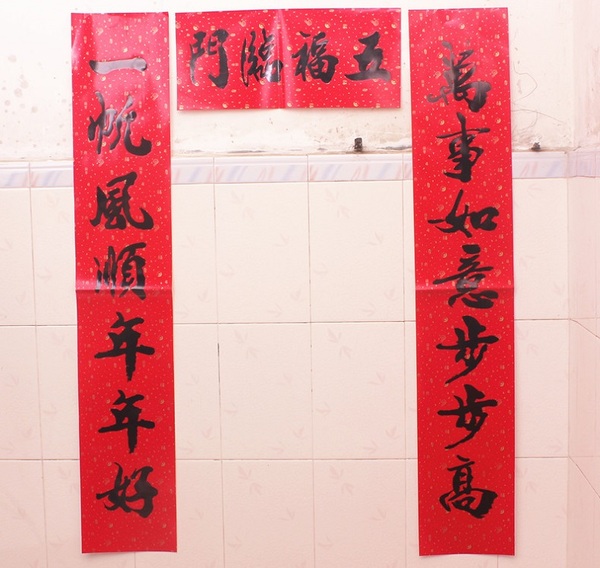 五福臨門
萬事如意步步高
一帆風順年年好